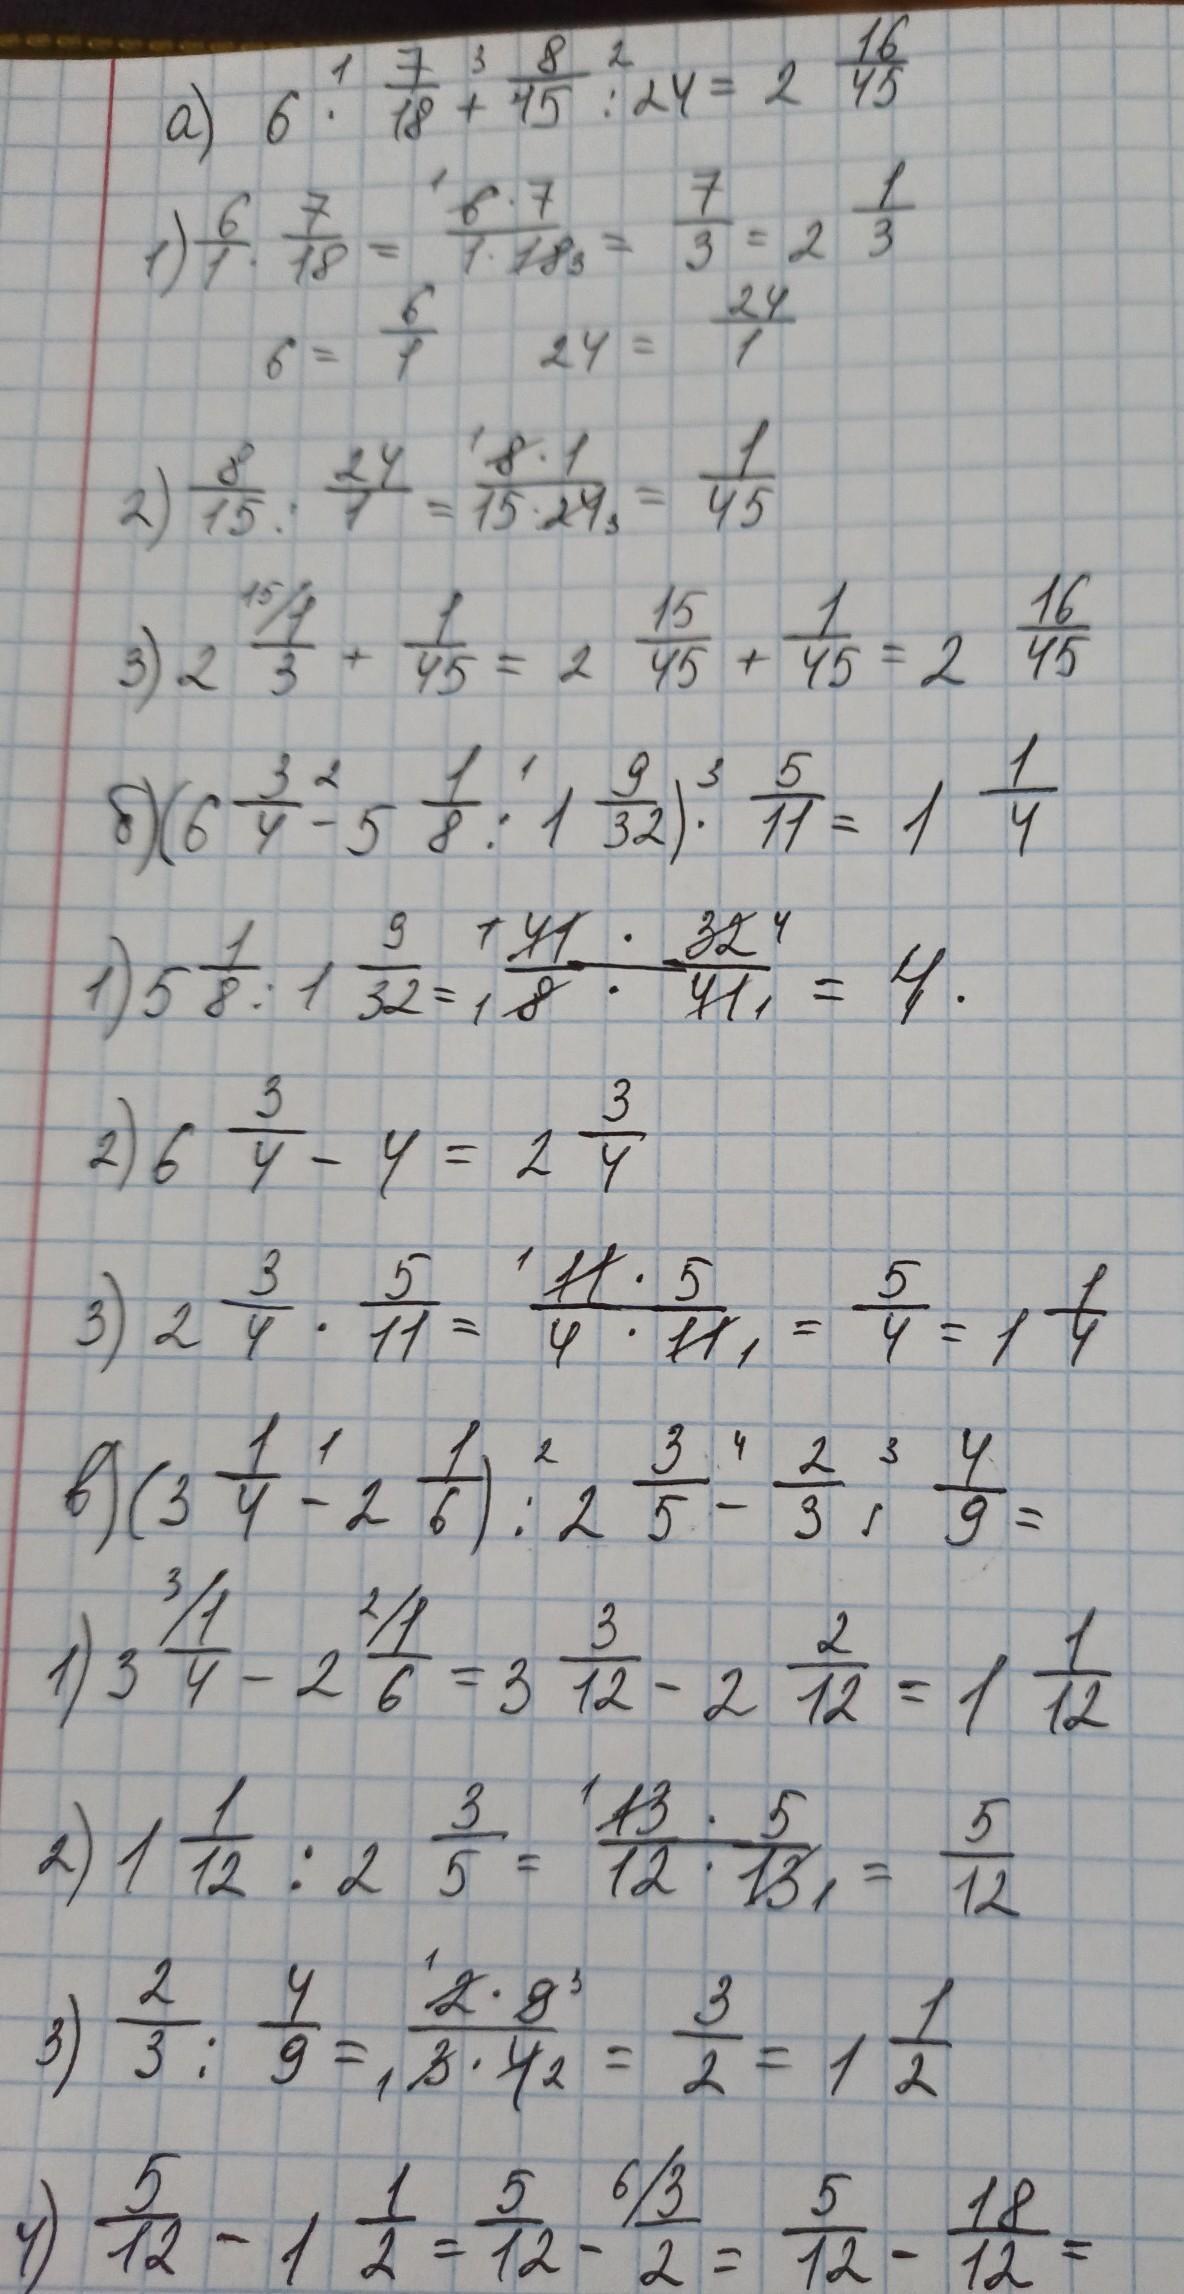 а) 6 ·¹ 7/18 +³ 8/45 :² 24 = 2 16/45
1) 6/1 · 7/18 = ¹6·7/1·18₃ = 7/3 = 2 1/3
6 = 6/1 24 = 24/1
2) 8/15 : 24/1 = ¹8·1/15·24₃ = 1/45
3) 2 ¹⁵/1/3 + 1/45 = 2 15/45 + 1/45 = 2 16/45
б) (6 3/4 -² 5 1/8 :¹ 1 9/32) ·³ 5/11 = 1 1/4
1) 5 1/8 : 1 9/32 = ¹41 · 32⁴/₁8 · 41₁ = 4.
2) 6 3/4 - 4 = 2 3/4
3) 2 3/4 · 5/11 = ¹11 · 5/4 · 11₁ = 5/4 = 1 1/4
в) (3 1/4 -¹ 2 1/6) :² 2 3/5 -⁴ 2/3 :³ 4/9 =
1) 3 ³/1/4 - 2 ²/1/6 = 3 3/12 - 2 2/12 = 1 1/12
2) 1 1/12 : 2 3/5 = ¹13 · 5/12 · 13₁ = 5/12
3) 2/3 : 4/9 = ¹2·9³/₁3·4₂ = 3/2 = 1 1/2
4) 5/12 - 1 1/2 = 5/12 - ⁶/3/2 = 5/12 - 18/12 =